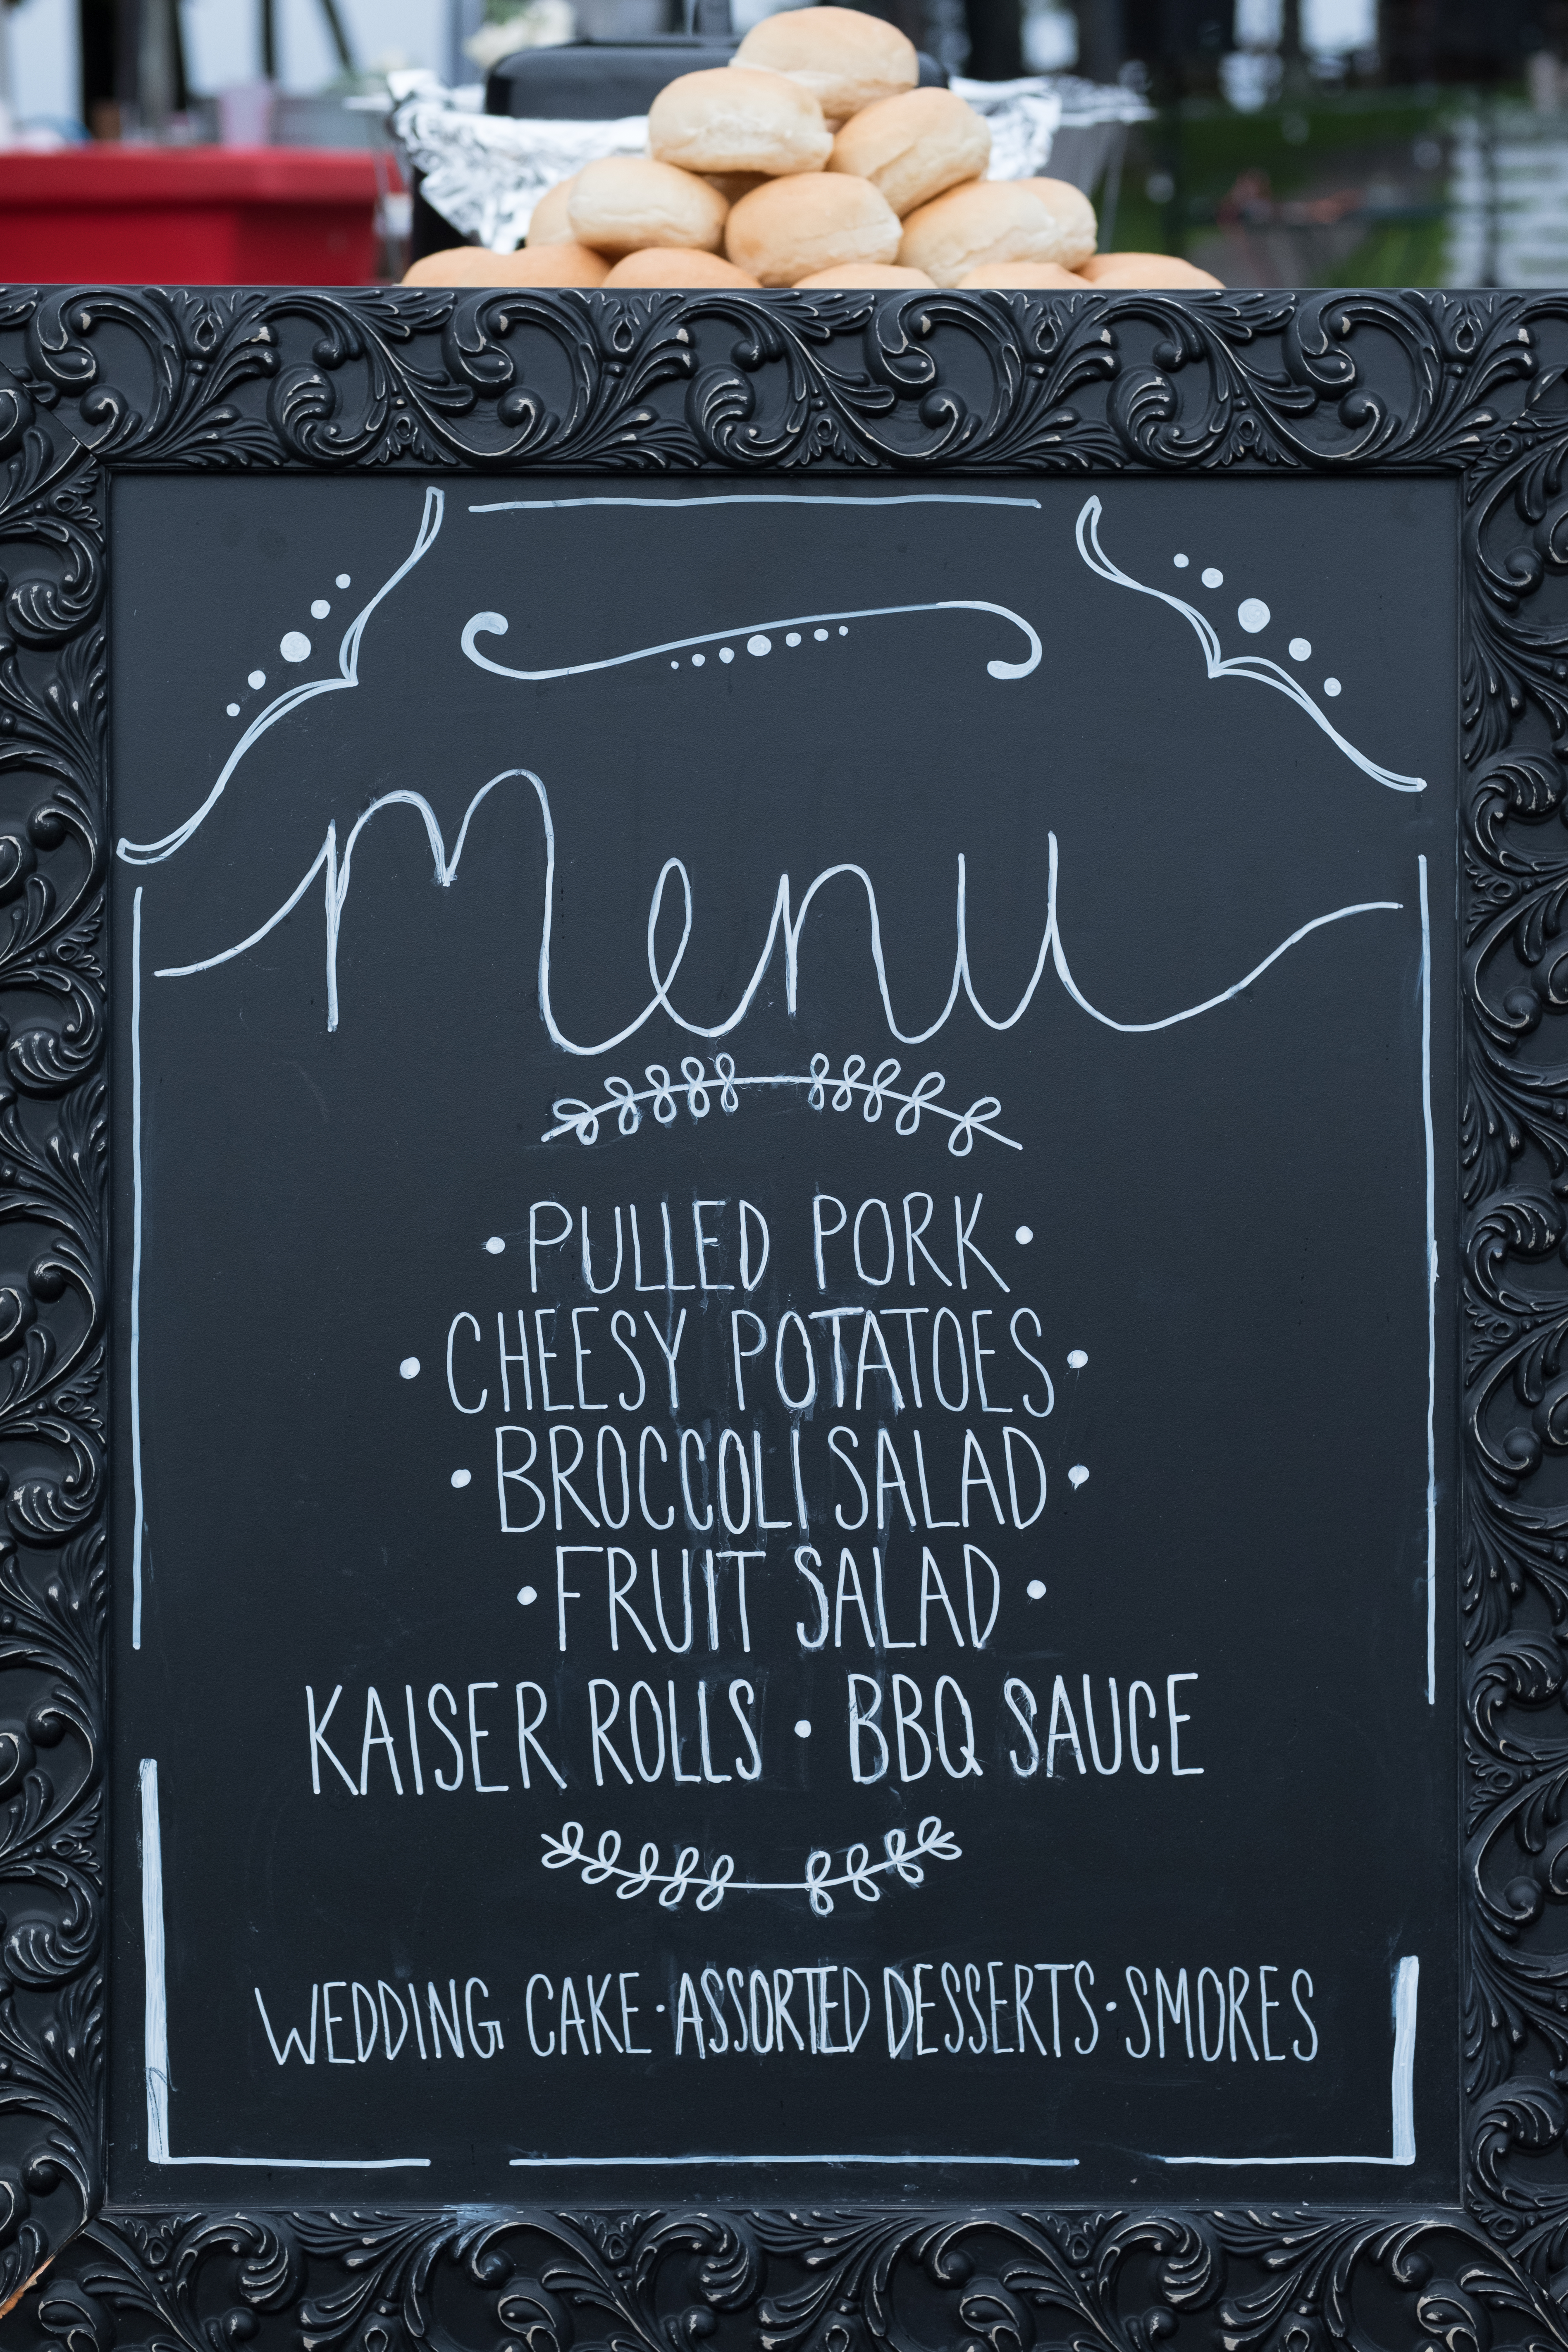 Menu
• PULLED PORK •
• CHEESY POTATOES •
• BROCCOLI SALAD •
• FRUIT SALAD •
KAISER ROLLS • BBQ SAUCE
WEDDING CAKE • ASSORTED DESSERTS • SMORES